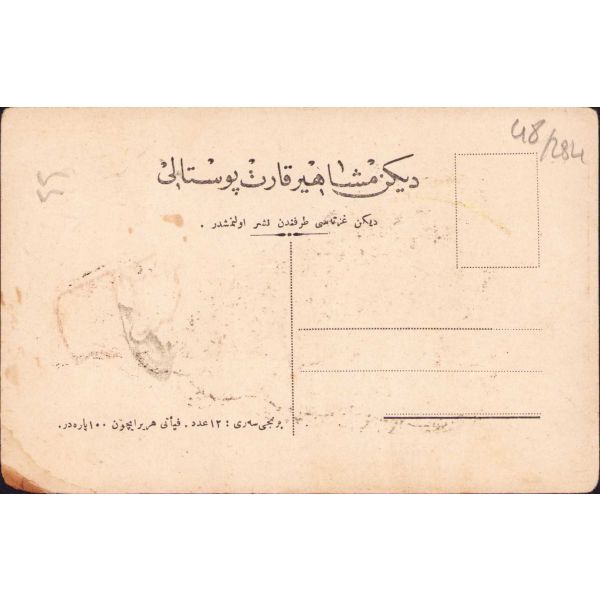 48/284
ديكن مشاهير قارت پوستالی
ديكن غزته‌سی طرفندن نشر اولنمشدر .
برنجی سه‌ری : ١٢ عدد . فيأتی هر بر ايچون ١٠٠ پاره‌در.